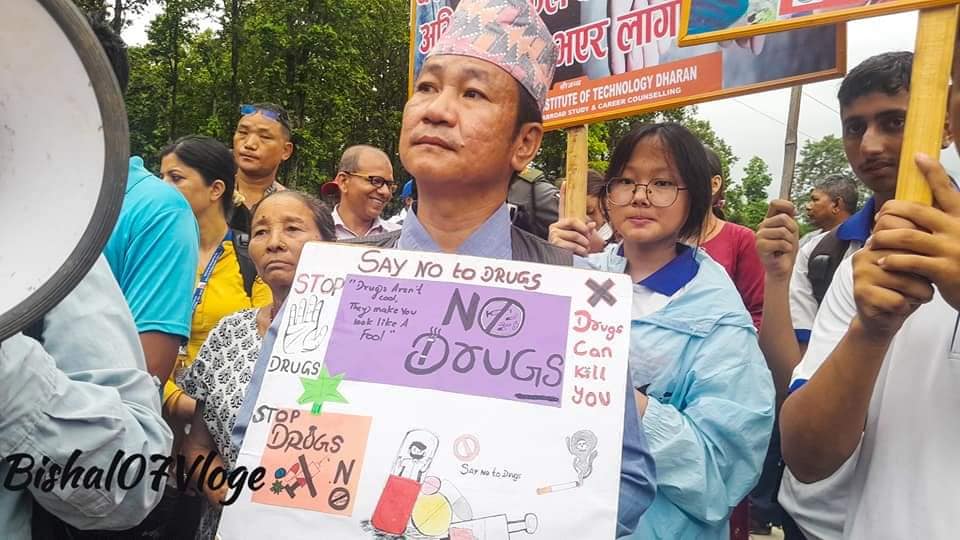 भएर लाग
STITUTE OF TECHNOLOGY DHARAN
ABROAD STUDY & CAREER COUNSELLING
SAY NO to DRUGS
STOP
DRUGS
"Drugs Aren't
cool,
They make you
look like A
Fool"
NO
DRUGS
Drugs
Can
Kill
YOU
STOP
DRUGS
NO
Say No to Drugs
Bishal07Vloge